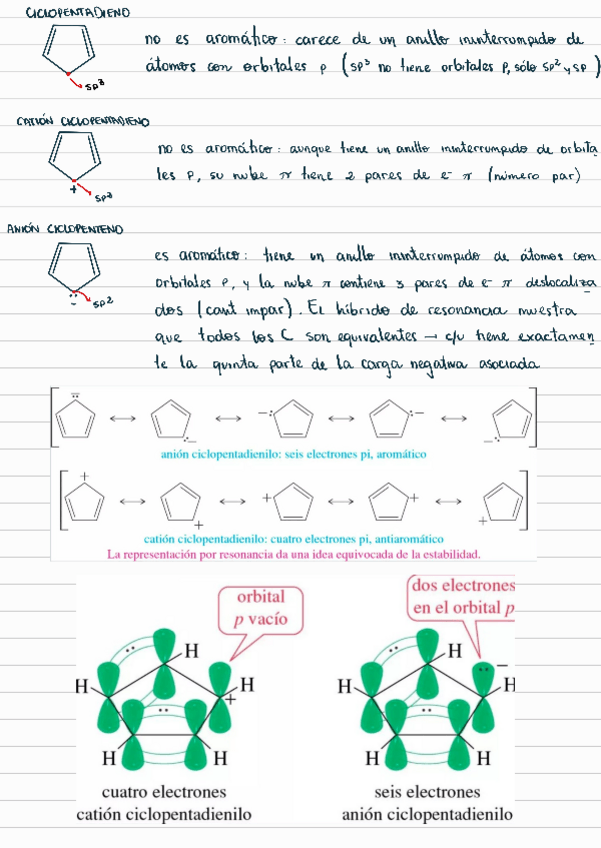 CICLOPENTADIENO
no es aromático: carece de un anillo ininterrumpido de
átomos con orbitales p (sp³ no tiene orbitales p, sólo sp² y sp)
sp³
CATIÓN CICLOPENTADIENO
no es aromático: aunque tiene un anillo ininterrumpido de orbita
les p, su nube π tiene 2 pares de e⁻ π (número par)
+
sp²
ANIÓN CICLOPENTENO
es aromático: tiene un anillo ininterrumpido de átomos con
orbitales p, y la nube π contiene 3 pares de e⁻ π deslocaliza
dos (cant impar). El híbrido de resonancia muestra
que todos los C son equivalentes → c/u tiene exactamen
te la quinta parte de la carga negativa asociada
sp²
anión ciclopentadienilo: seis electrones pi, aromático
catión ciclopentadienilo: cuatro electrones pi, antiaromático
La representación por resonancia da una idea equivocada de la estabilidad.
orbital
p vacío
H
H
H
+
H
H
cuatro electrones
catión ciclopentadienilo
dos electrones
en el orbital p
H
H
H
H
H
seis electrones
anión ciclopentadienilo